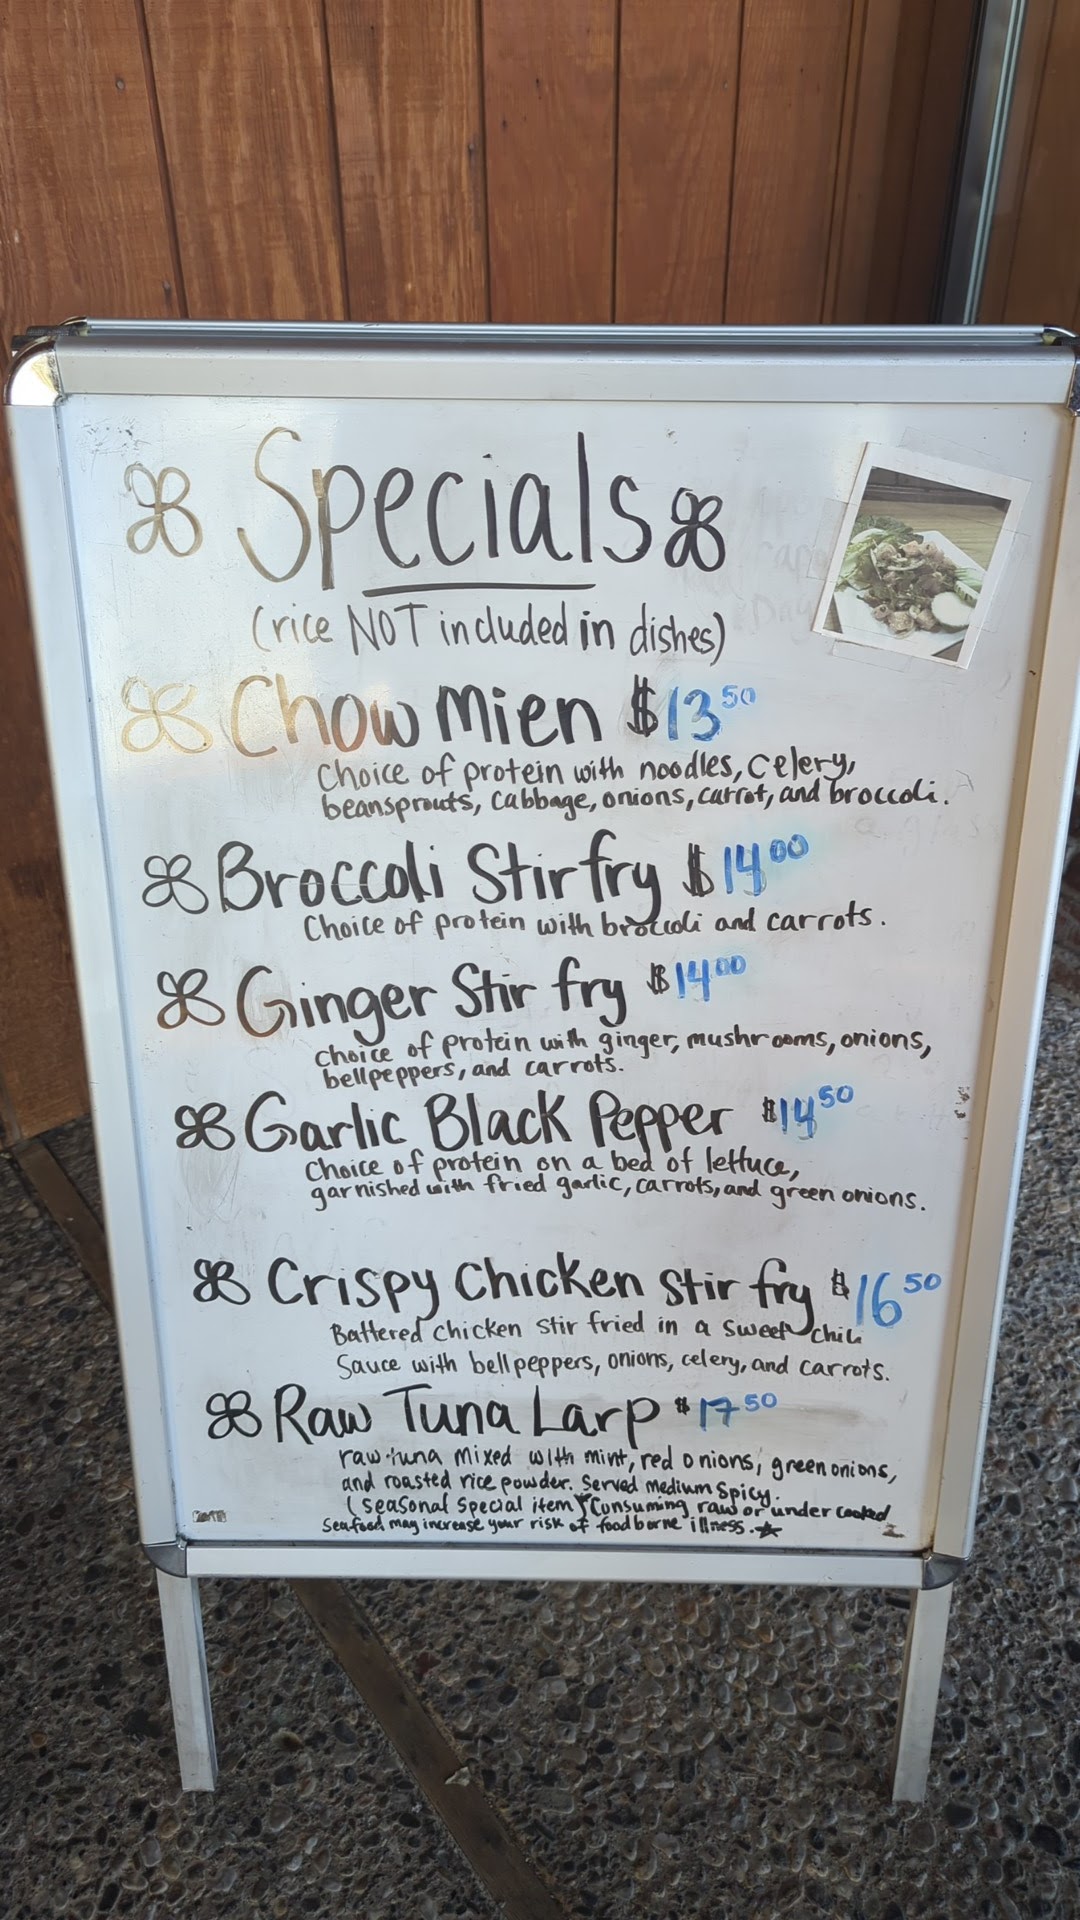 Specials
(rice NOT included in dishes)
Chow Mien $13.50
Choice of protein with noodles, celery,
beansprouts, cabbage, onions, carrot, and broccoli.
Broccoli Stir fry $14.00
Choice of protein with broccoli and carrots.
Ginger Stir fry $14.00
choice of protein with ginger, mushrooms, onions,
bellpeppers, and carrots.
Garlic Black Pepper $14.50
Choice of protein on a bed of lettuce,
garnished with fried garlic, carrots, and green onions.
Crispy Chicken Stir fry $16.50
Battered chicken stir fried in a sweet chili
Sauce with bellpeppers, onions, celery, and carrots.
Raw Tuna Larp $17.50
raw tuna mixed with mint, red onions, green onions,
and roasted rice powder. Served medium spicy.
(seasonal special item) Consuming raw or under cooked
Seafood may increase your risk of foodborne illness.